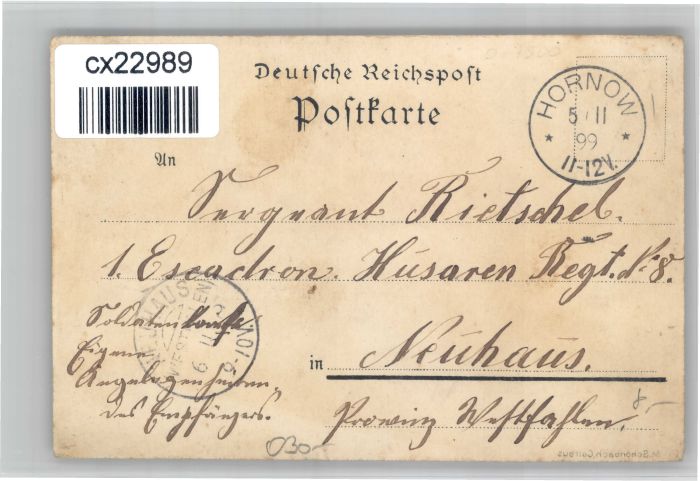 cx22989
Deutsche Reichspost
Postkarte
HORNOW
5 / 11
99
11-12V.
An
Sergeant Rietschel.
1. Escadron. Husaren Regt. No 8.
in Neuhaus.
Provinz Westfahlen.
Soldaten
Eigene
Angelegenheiten
des Empfängers.
NEUHAUS
WESTFALEN
6 11 9
9-10V.
8-
030-
M. Schönbach, Cottbus